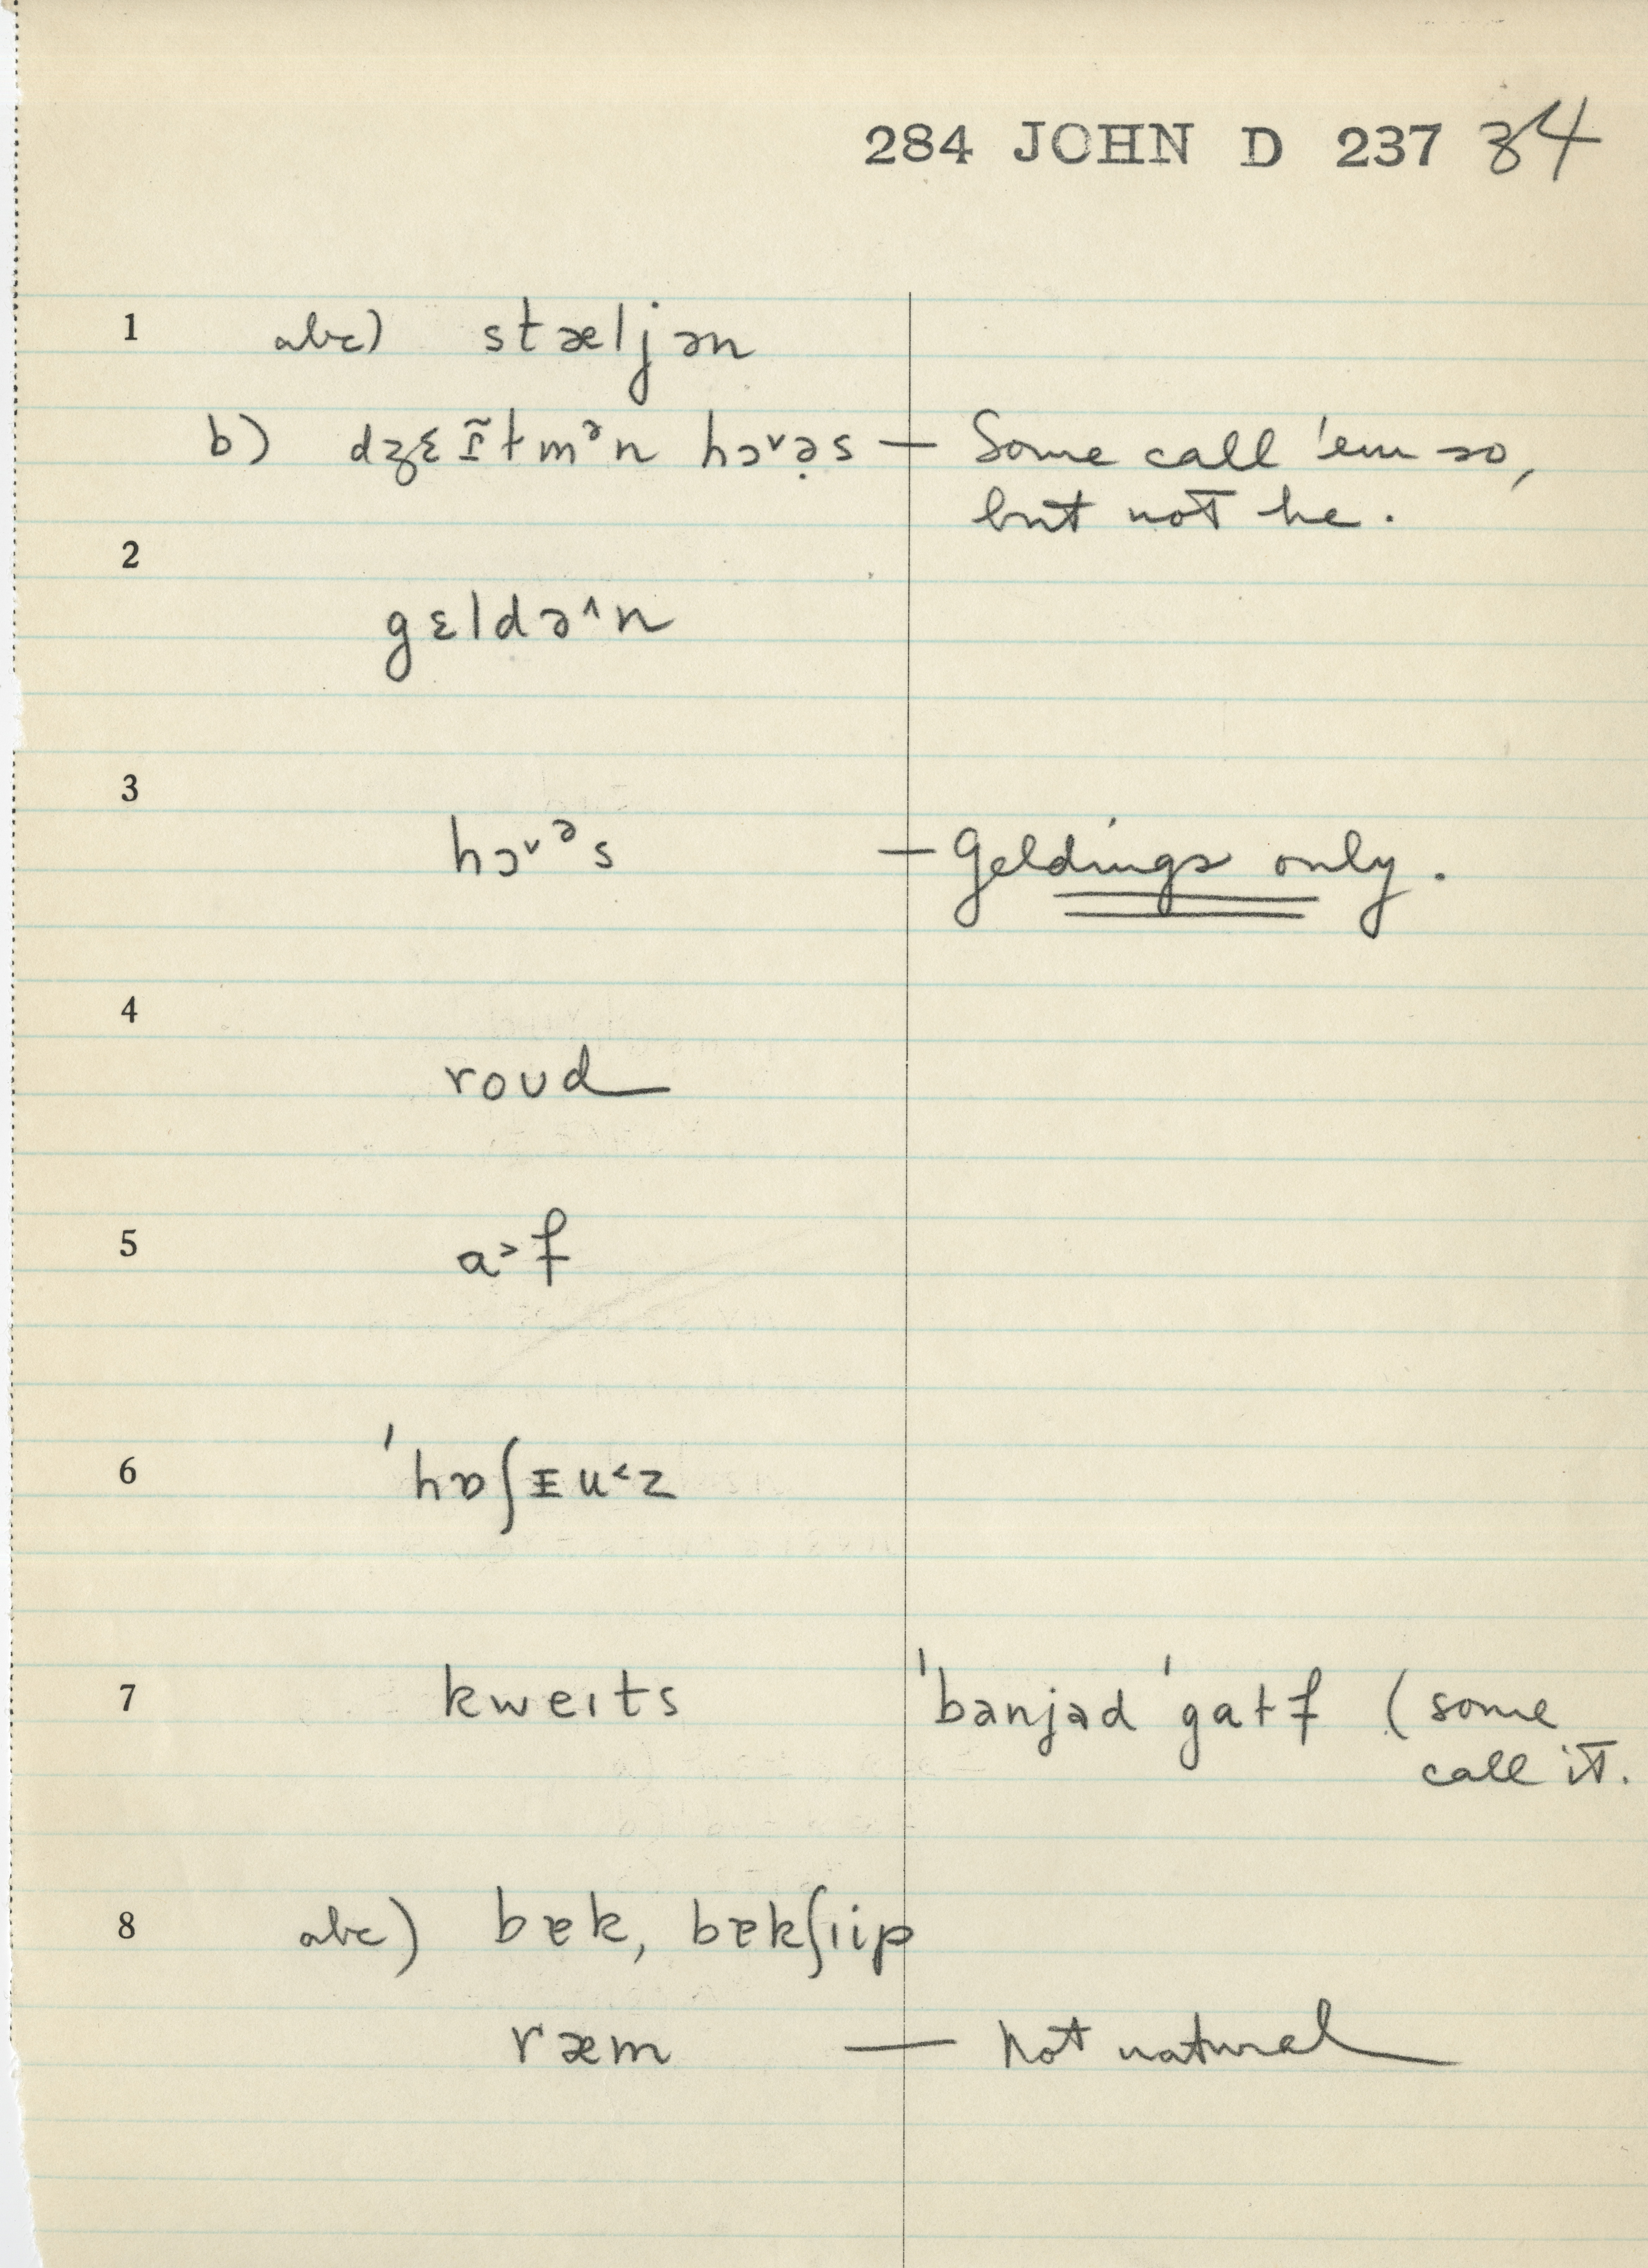 284 JOHN D 237 34
1 abc) stæljən
b) dʒɛɪ̃tmᵊn hɔ˅ə̣s — Some call 'em so,
but not he.
2
gɛldə^n
3
hɔ˅ᵊs — Geldings only.
4
roʊd
5
a˃f
6
'hɒʃɪu˂z
7
kweɪts 'banjəd 'gatf (some
call it.
8 abc) bɐk, bɐkʃɪip
ræm — not natural